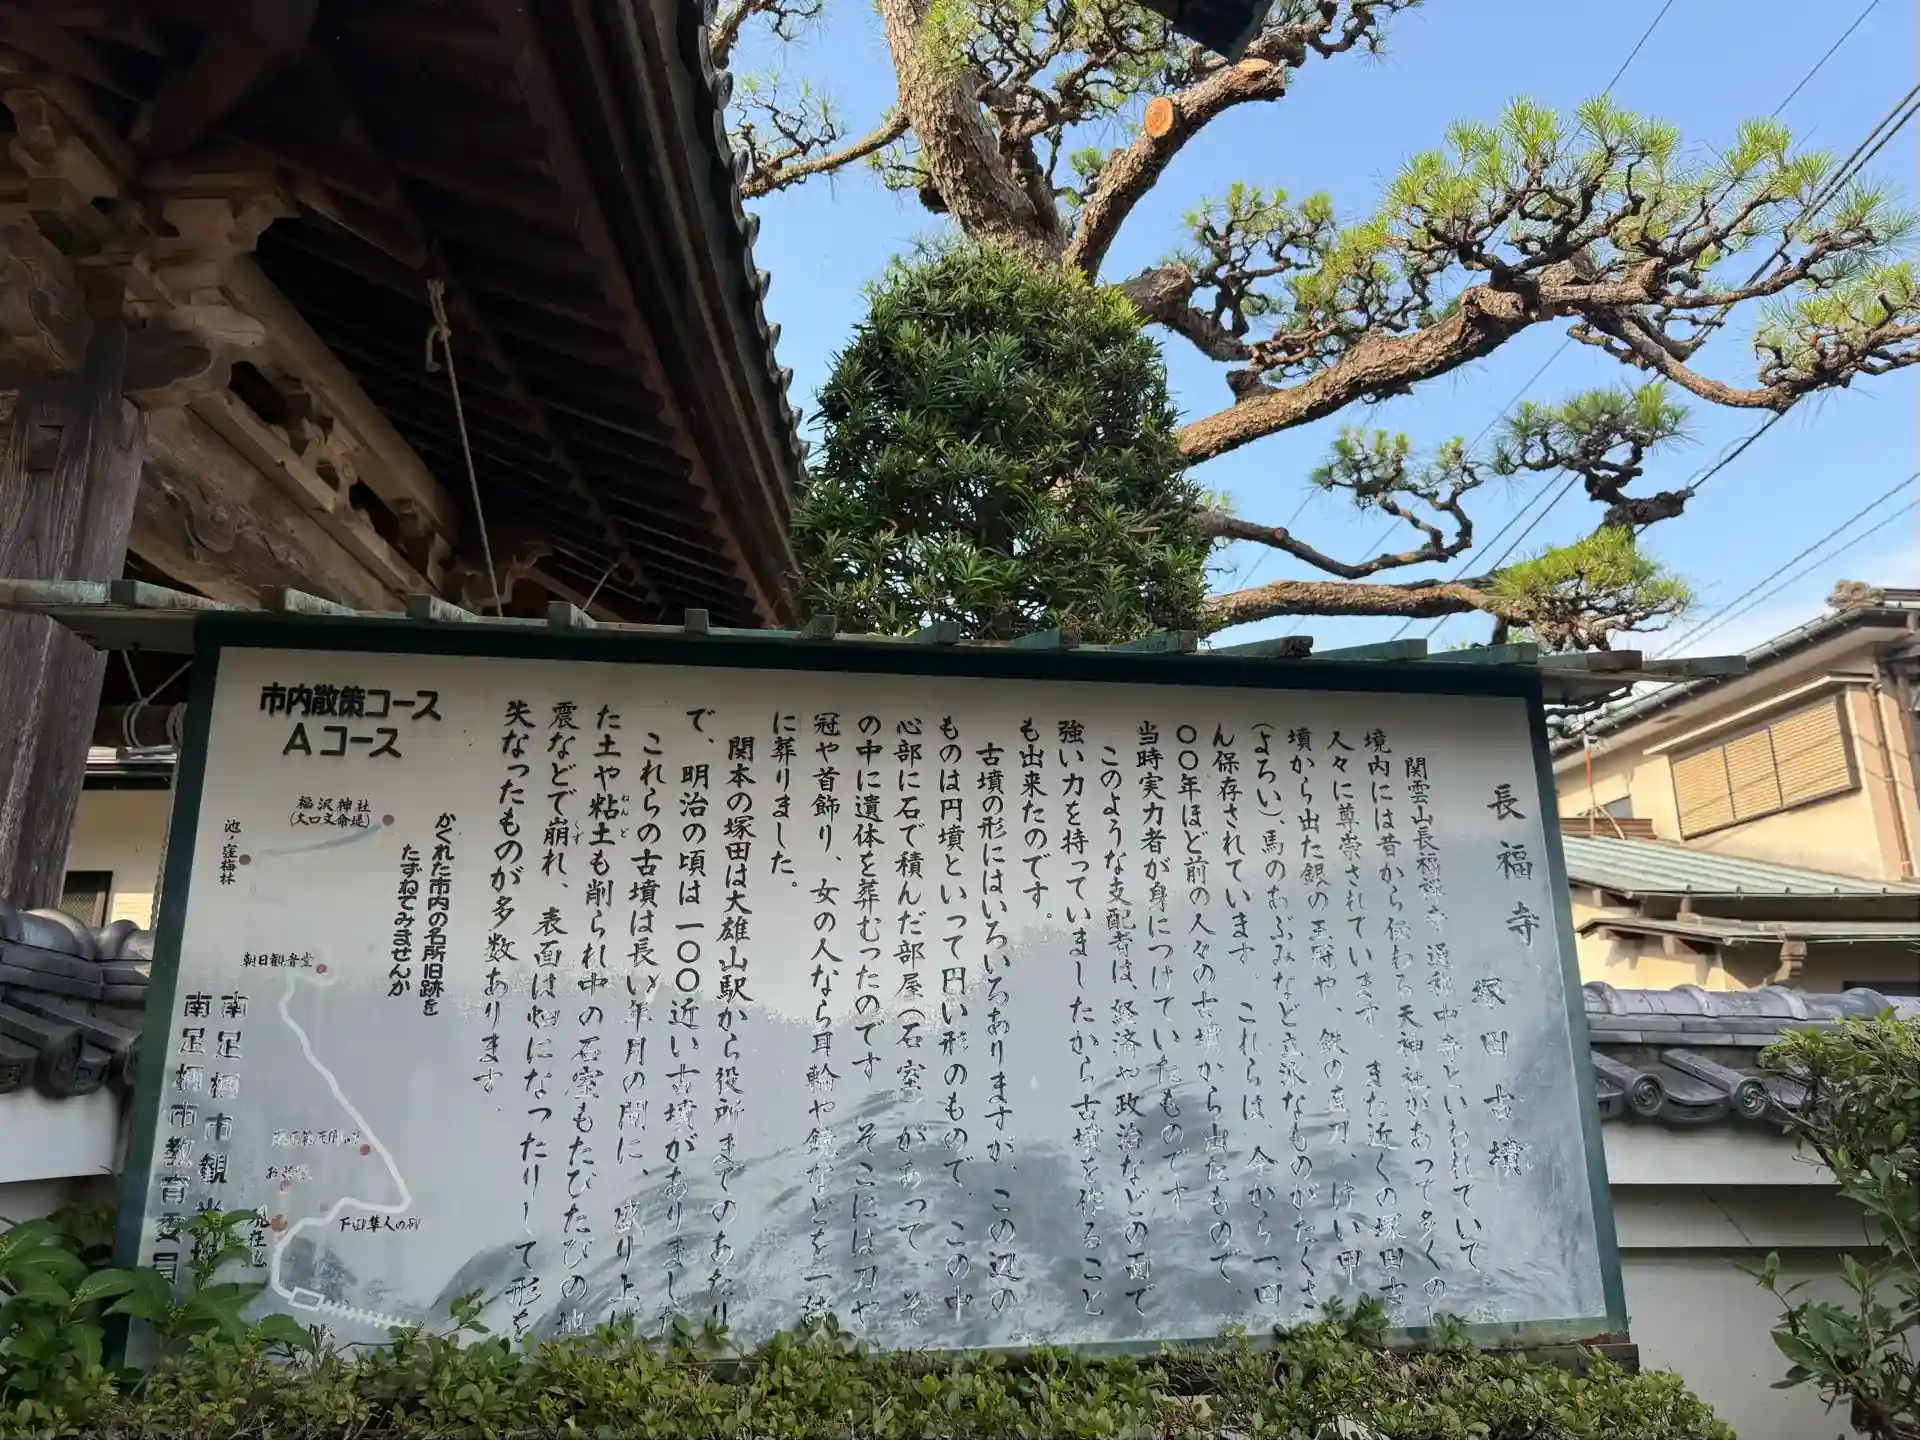 長福寺
塚田古墳
関雲山長福禅寺 通称中寺といわれていて、
境内には昔から伝わる天神社があって多くの
人々に尊崇されています。また近くの塚田古
墳から出た銀の玉冠や、鉄の直刀、けい甲
(よろい)、馬のあぶみなど立派なものがたくさ
ん保存されています。これらは、今から一、四
〇〇年ほど前の人々の古墳から出たもので、
当時実力者が身につけていたものです。
このような支配者は、経済や政治などの面で
強い力を持っていましたから古墳を作ること
も出来たのです。
古墳の形にはいろいろありますが、この辺の
ものは円墳といって円い形のもので、この中
心部に石で積んだ部屋(石室)があって、そ
の中に遺体を葬むったのです そこには刀や
冠や首飾り、女の人なら耳輪や鏡などを一緒
に葬りました。
関本の塚田は大雄山駅から役所までのあたり
で、明治の頃は一〇〇近い古墳がありました
これらの古墳は長い年月の間に、盛り上げ
た土や粘土も削られ中の石室もたびたびの地
ねんど
震などで崩れ、表面は畑になったりして形を
くず
失なったものが多数あります。
市内散策コース
Aコース
かくれた市内の名所旧跡を
たずねてみませんか
福沢神社
(大口文命堤)
池ノ窪梅林
朝日観音堂
下田隼人の碑
現在地
南足柄市観光協
南足柄市教育委員